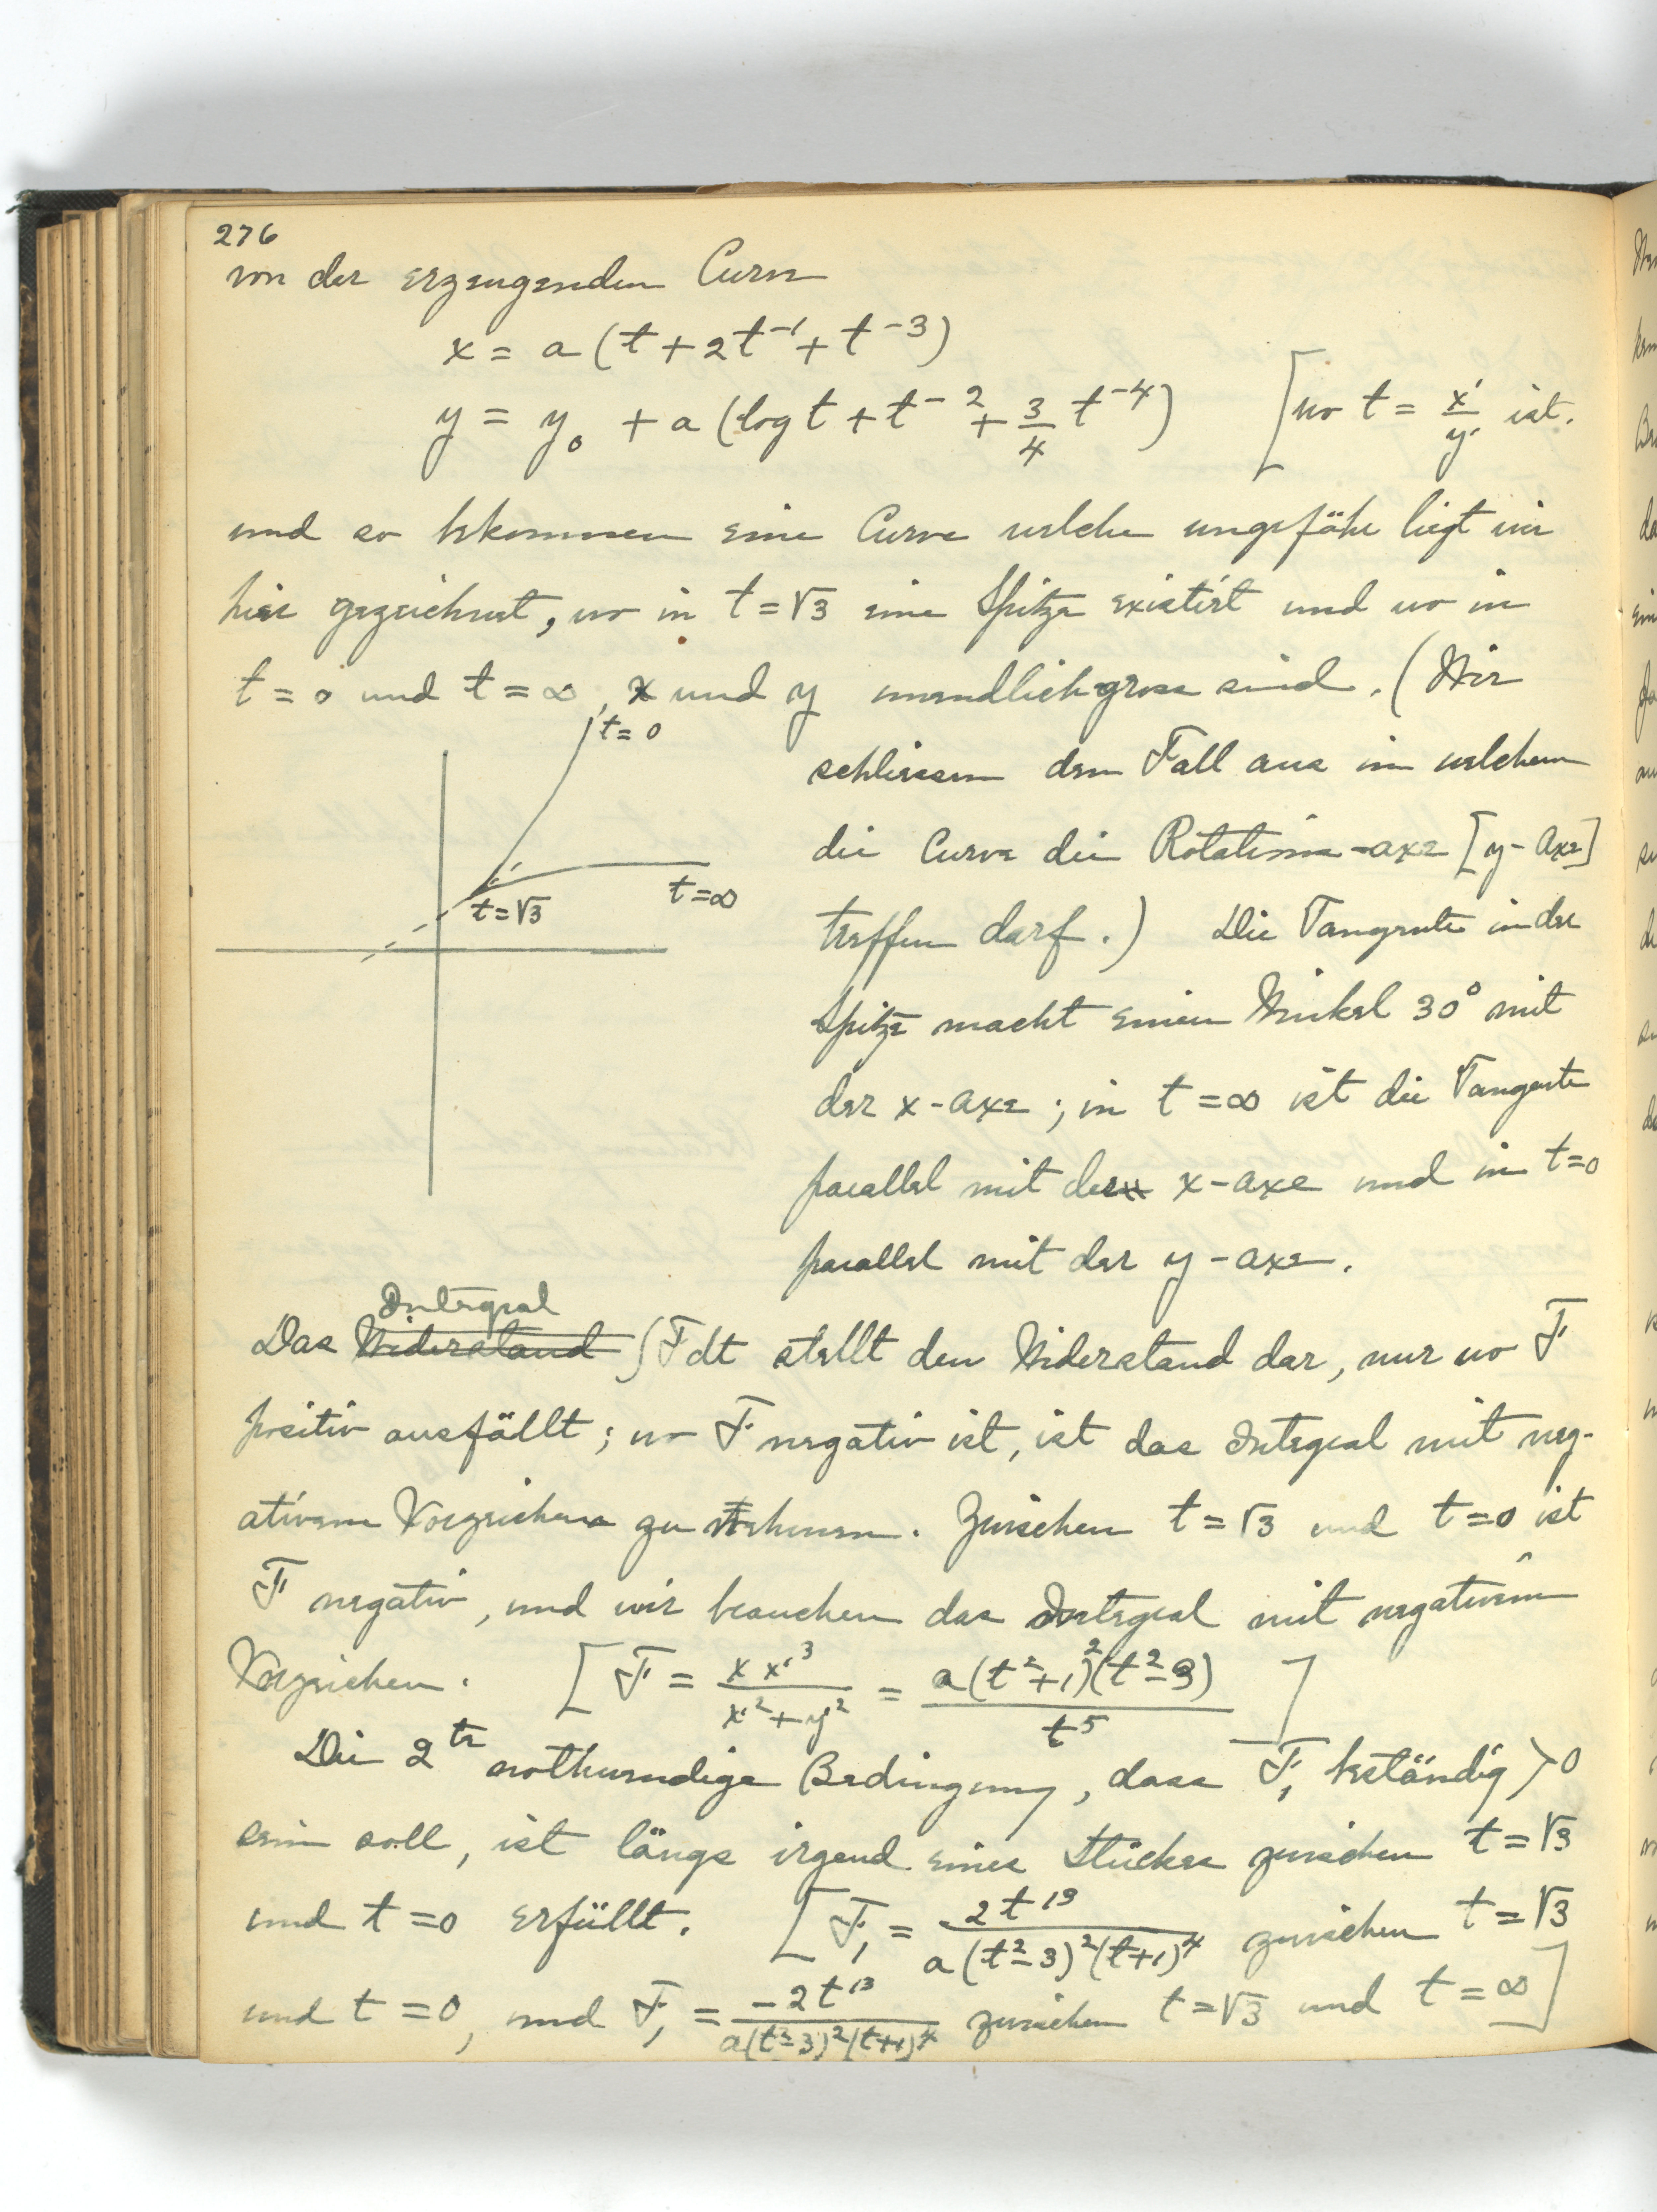 276
von der erzeugenden Curve
x = a (t + 2t⁻¹ + t⁻³)
y = y₀ + a (log t + t⁻² + 3/4 t⁻⁴) [wo t = x'/y' ist.
und so bekommen eine Curve welche ungefähr liegt wie
hier gezeichnet, wo in t = √3 eine Spitze existirt und wo in
t = 0 und t = ∞, x und y unendlich gross sind. (Wir
t = 0
t = √3
t = ∞
schliessen den Fall aus in welchem
die Curve die Rotations-axe [y-Axe]
treffen darf.) Die Tangente in der
Spitze macht einen Winkel 30° mit
der x-axe; in t = ∞ ist die Tangente
parallel mit der x-axe und in t=0
parallel mit der y-axe.
Integral
Das Widerstand ∫F dt stellt den Widerstand dar, nur wo F
positiv ausfällt; wo F negativ ist, ist das Integral mit neg-
ativem Vorzeichen zu nehmen. Zwischen t = √3 und t = 0 ist
F negativ, und wir brauchen das Integral mit negativem
Vorzeichen. [F = x x'³/x'²+y'² = a(t²+1)²(t²-3)/t⁵]
Die 2te nothwendige Bedingung, dass F₁ beständig > 0
sein soll, ist längs irgend eines Stückes zwischen t = √3
und t = 0 erfüllt. [F₁ = 2t¹³/a(t²-3)²(t+1)⁴ zwischen t = √3
und t = 0, und F₁ = -2t¹³/a(t²-3)²(t+1)⁴ zwischen t = √3 und t = ∞]